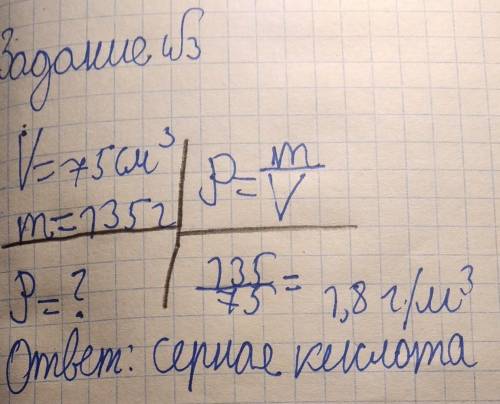 Задание №3
V=75см³
m=135г
ρ=m/V
ρ=?
135/75= 1,8 г/м³
Ответ: серная кислота